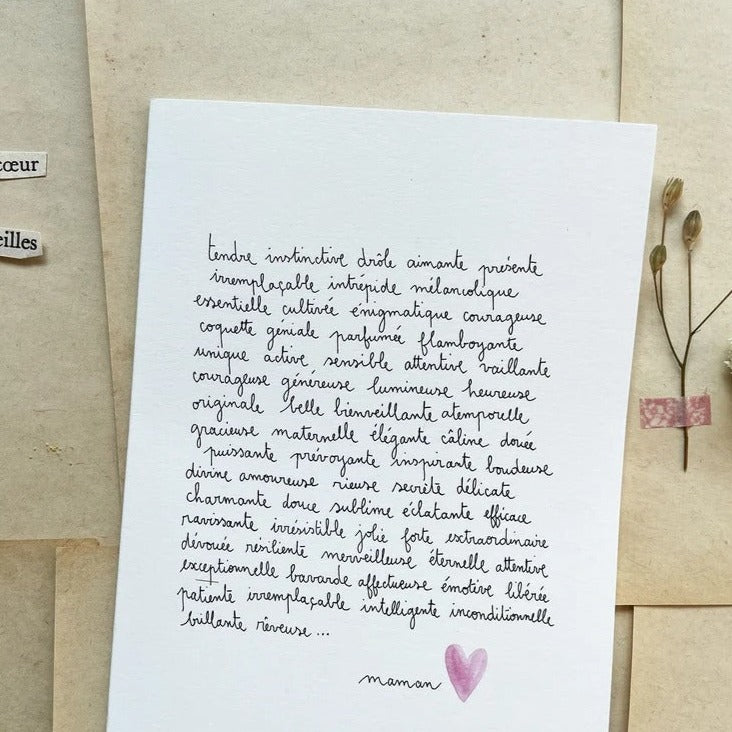 cœur
eilles
tendre instinctive drôle aimante présente
irremplaçable intrépide mélancolique
essentielle cultivée énigmatique courageuse
coquette géniale parfumée flamboyante
unique active sensible attentive vaillante
courageuse généreuse lumineuse heureuse
originale belle bienveillante atemporelle
gracieuse maternelle élégante câline douée
puissante prévoyante inspirante boudeuse
divine amoureuse rieuse secrète délicate
charmante douce sublime éclatante efficace
ravissante irrésistible jolie forte extraordinaire
dévouée résiliente merveilleuse éternelle attentive
exceptionnelle bavarde affectueuse émotive libérée
patiente irremplaçable intelligente inconditionnelle
brillante rêveuse...
maman